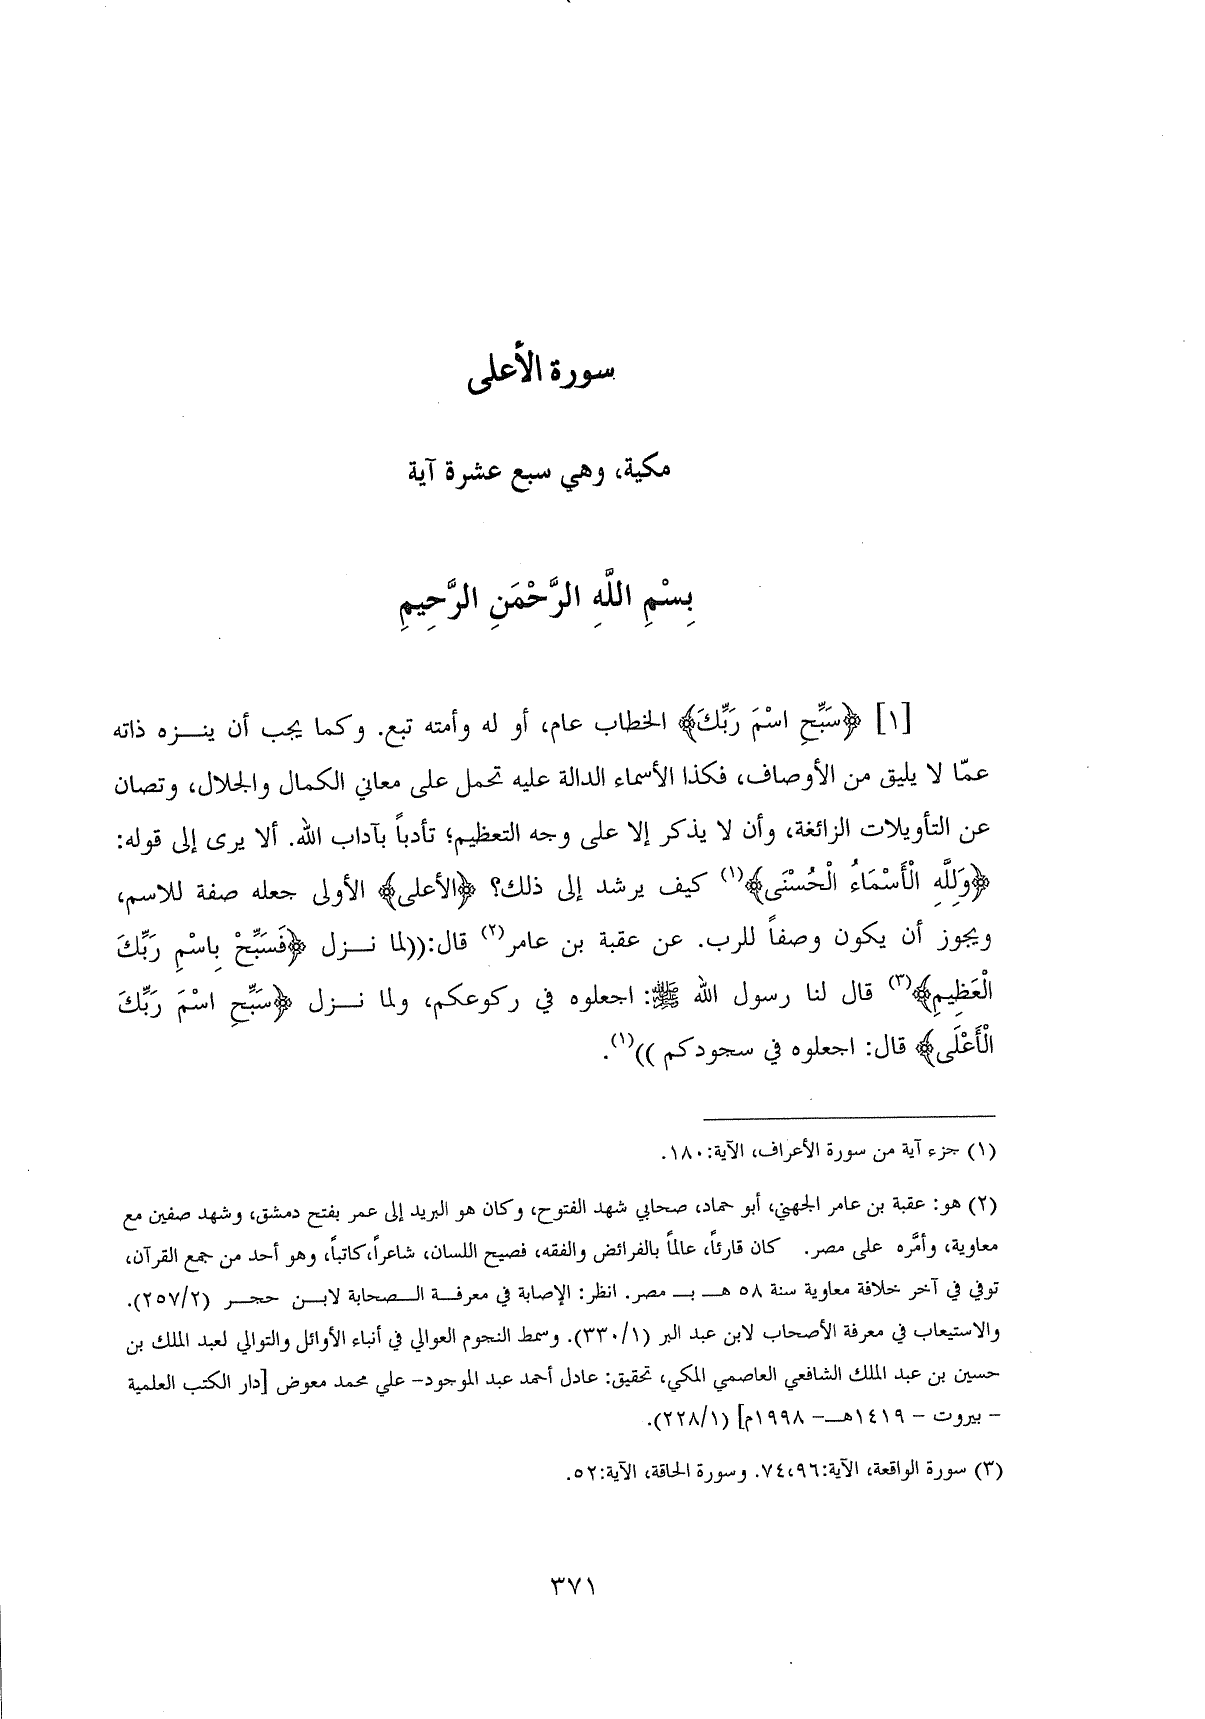 سورة الأعلى
مكية، وهي سبع عشرة آية
بِسْمِ اللَّهِ الرَّحْمَنِ الرَّحِيمِ
[١] ﴿سَبِّحِ اسْمَ رَبِّكَ﴾ الخطاب عام، أو له وأمته تبع. وكما يجب أن ينـــزه ذاته
عمّا لا يليق من الأوصاف، فكذا الأسماء الدالة عليه تحمل على معاني الكمال والجلال، وتصان
عن التأويلات الزائغة، وأن لا يذكر إلا على وجه التعظيم؛ تأدباً بآداب الله. ألا يرى إلى قوله:
﴿وَلِلَّهِ الْأَسْمَاءُ الْحُسْنَى﴾(١) كيف يرشد إلى ذلك؟ ﴿الأعلى﴾ الأولى جعله صفة للاسم،
ويجوز أن يكون وصفاً للرب. عن عقبة بن عامر(٢) قال:((لما نـــزل ﴿فَسَبِّحْ بِاسْمِ رَبِّكَ
الْعَظِيمِ﴾(٣) قال لنا رسول الله ﷺ: اجعلوه في ركوعكم، ولما نـــزل ﴿سَبِّحِ اسْمَ رَبِّكَ
الْأَعْلَى﴾ قال: اجعلوه في سجودكم ))(١).
(١) جزء آية من سورة الأعراف، الآية:١٨٠.
(٢) هو: عقبة بن عامر الجهني، أبو حماد، صحابي شهد الفتوح، وكان هو البريد إلى عمر بفتح دمشق، وشهد صفين مع
معاوية، وأمَّره على مصر. كان قارئاً، عالماً بالفرائض والفقه، فصيح اللسان، شاعراً،كاتباً، وهو أحد من جمع القرآن،
توفي في آخر خلافة معاوية سنة ٥٨ هـــ بـــ مصر. انظر: الإصابة في معرفـــة الـــصحابة لابـــن حجـــر (٢٥٧/٢).
والاستيعاب في معرفة الأصحاب لابن عبد البر (٣٣٠/١). وسمط النجوم العوالي في أنباء الأوائل والتوالي لعبد الملك بن
حسين بن عبد الملك الشافعي العاصمي المكي، تحقيق: عادل أحمد عبد الموجود– علي محمد معوض [دار الكتب العلمية
– بيروت – ١٤١٩هـــ– ١٩٩٨م] (٢٢٨/١).
(٣) سورة الواقعة، الآية:٧٤،٩٦. وسورة الحاقة، الآية:٥٢.
٣٧١